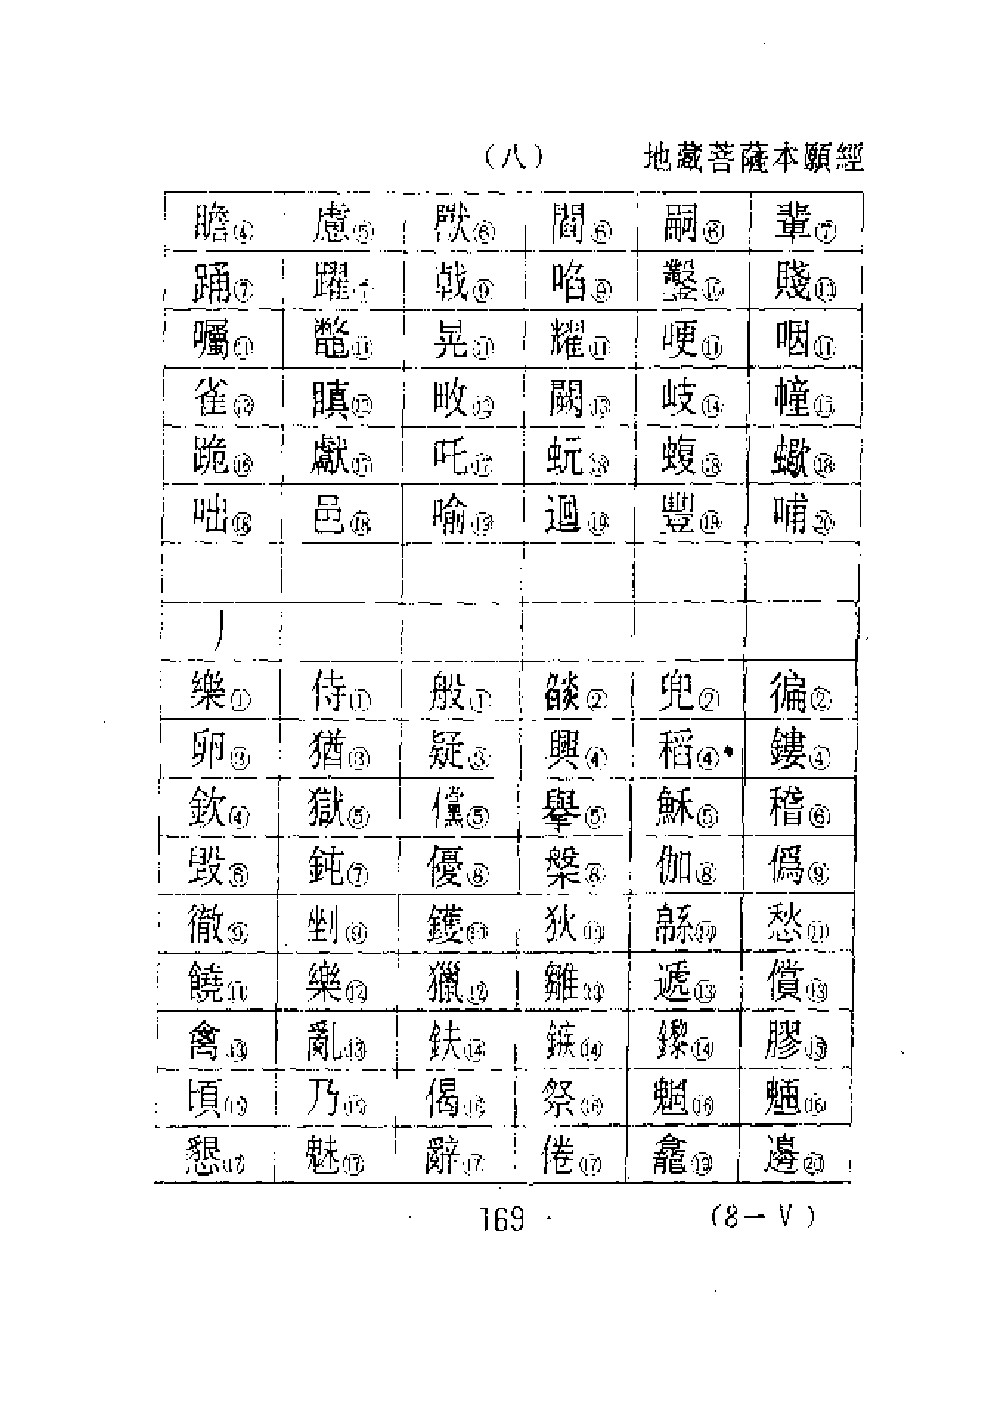 （八） 地藏菩薩本願經
瞻④ 慮⑤ 獸⑥ 閻⑥ 嗣⑥ 輩⑦
踊⑦ 躍 戟⑨ 啗⑨ 鑿⑩ 賤
囑⑪ 鼈⑪ 晃⑪ 耀⑪ 哽⑪ 咽⑪
雀 瞋⑫ 畋⑫ 闕 岐⑭ 幢⑮
跪⑯ 獻⑰ 吒⑰ 蚖⑱ 蝮⑱ 蠍⑱
咄⑱ 邑⑱ 喻⑲ 迴⑲ 豐⑲ 哺⑳
樂① 侍① 般① 燄② 兜② 徧②
卵③ 猶③ 疑③ 興④ 稻④ 鏤④
欽④ 獄⑤ 儻⑤ 舉⑤ 穌⑤ 稽⑥
毀⑥ 鈍⑦ 優⑧ 槃⑧ 伽⑧ 僞⑨
徹⑨ 剉⑨ 鑊⑩ 狄 緜 愁⑪
饒⑪ 樂⑫ 獵⑫ 雛 遞⑬ 償⑬
禽⑬ 亂⑬ 鈇⑭ 鏃⑭ 鑗⑭ 膠⑮
頃⑮ 乃⑮ 偈 祭⑯ 魍⑯ 魎⑯
懇⑰ 魅⑰ 辭⑰ 倦⑰ 龕⑲ 邊
169 (8－V)